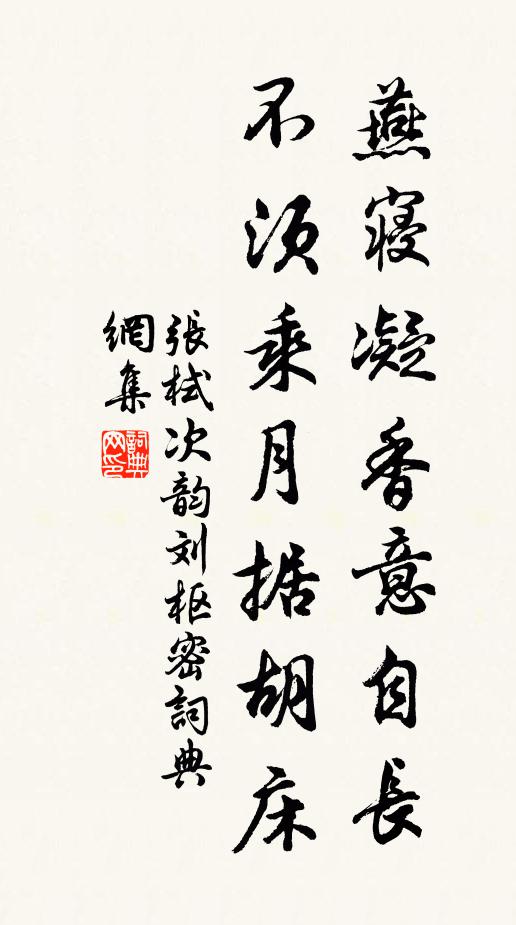 燕寝凝香意自長
不须乘月据胡床
張栻次韵刘枢密詞典
網集
詞典网印